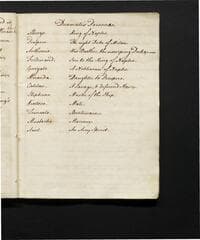 Dramatis Personae
Alonzo. King of Naples.
Prospero. The right Duke of Milan.
Anthonio. His Brother, the usurping Duke
Ferdinand. Son to the King of Naples.
Gonzalo. A Nobleman of Naples.
Miranda. Daughter to Prospero.
Caliban. A Savage, & deformed Slave.
Stephano. Master of the Ship.
Mate.
Boatswain.
Mustacho. Mariner.
Ariel. An Airy Spirit.